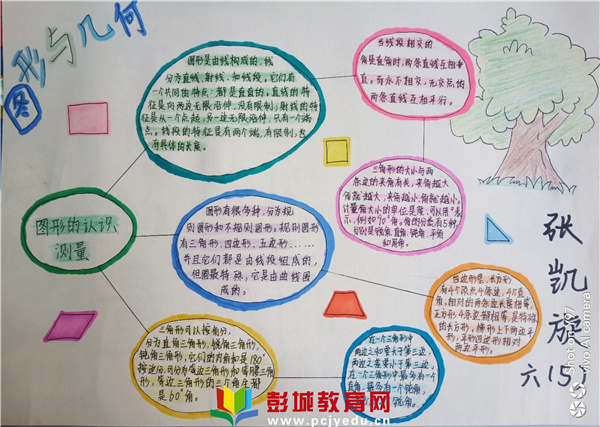 图形与几何
图形是由线构成的,线
分为直线、射线、和线段,它们有
一个共同的特点:都是直直的,直线的特
征是向两边无限沿伸,没有限制;射线的特
征是从一个点起,另一边无限沿伸,只有一个端
点。线段的特征是有两个端,有限制,也
有具体的长度。
当线段相交的
角是直角时,两条直线互相垂
直。而永不相交,无交点的
两条直线互相平行。
三角形的大小与两
条边的夹角有关,夹角越大
角就越大,夹角越小,角就越小。
计量角大小的单位是度,可以用°表
示,例如90°角。角的分类有5种,
分别是锐角、直角、钝角、平角
和周角。
图形的认识、
测量
图形有很多种,分为规
则图形和不规则图形,规则图形
有三角形、四边形、五边形……
并且它们都是由线段组成的,
但圆最特殊,它是由曲线围
成的。
四边形是,长方形
有4个顶点4条边,4个直
角,相对的两条边长度相等,
正方形4条边都相等,是特殊
的长方形,梯形上下两边平
行,平行四边形相对
两边平行。
三角形可以按角分,
分为直角三角形、锐角三角形、
钝角三角形,它们的内角和是180°
按边分,可分为等边三角形和等腰三角
形,等边三角形的三个角全都
是60°角。
在一个三角形中
两边之和要大于第三边,
两边之差要小于第三边,
在一个三角形中最多有一个
直角,最多有一个钝角,
张凯旋
六(5)
Shot on Z1
vivo AI camera
彭城教育网
www.pcjyedu.cn